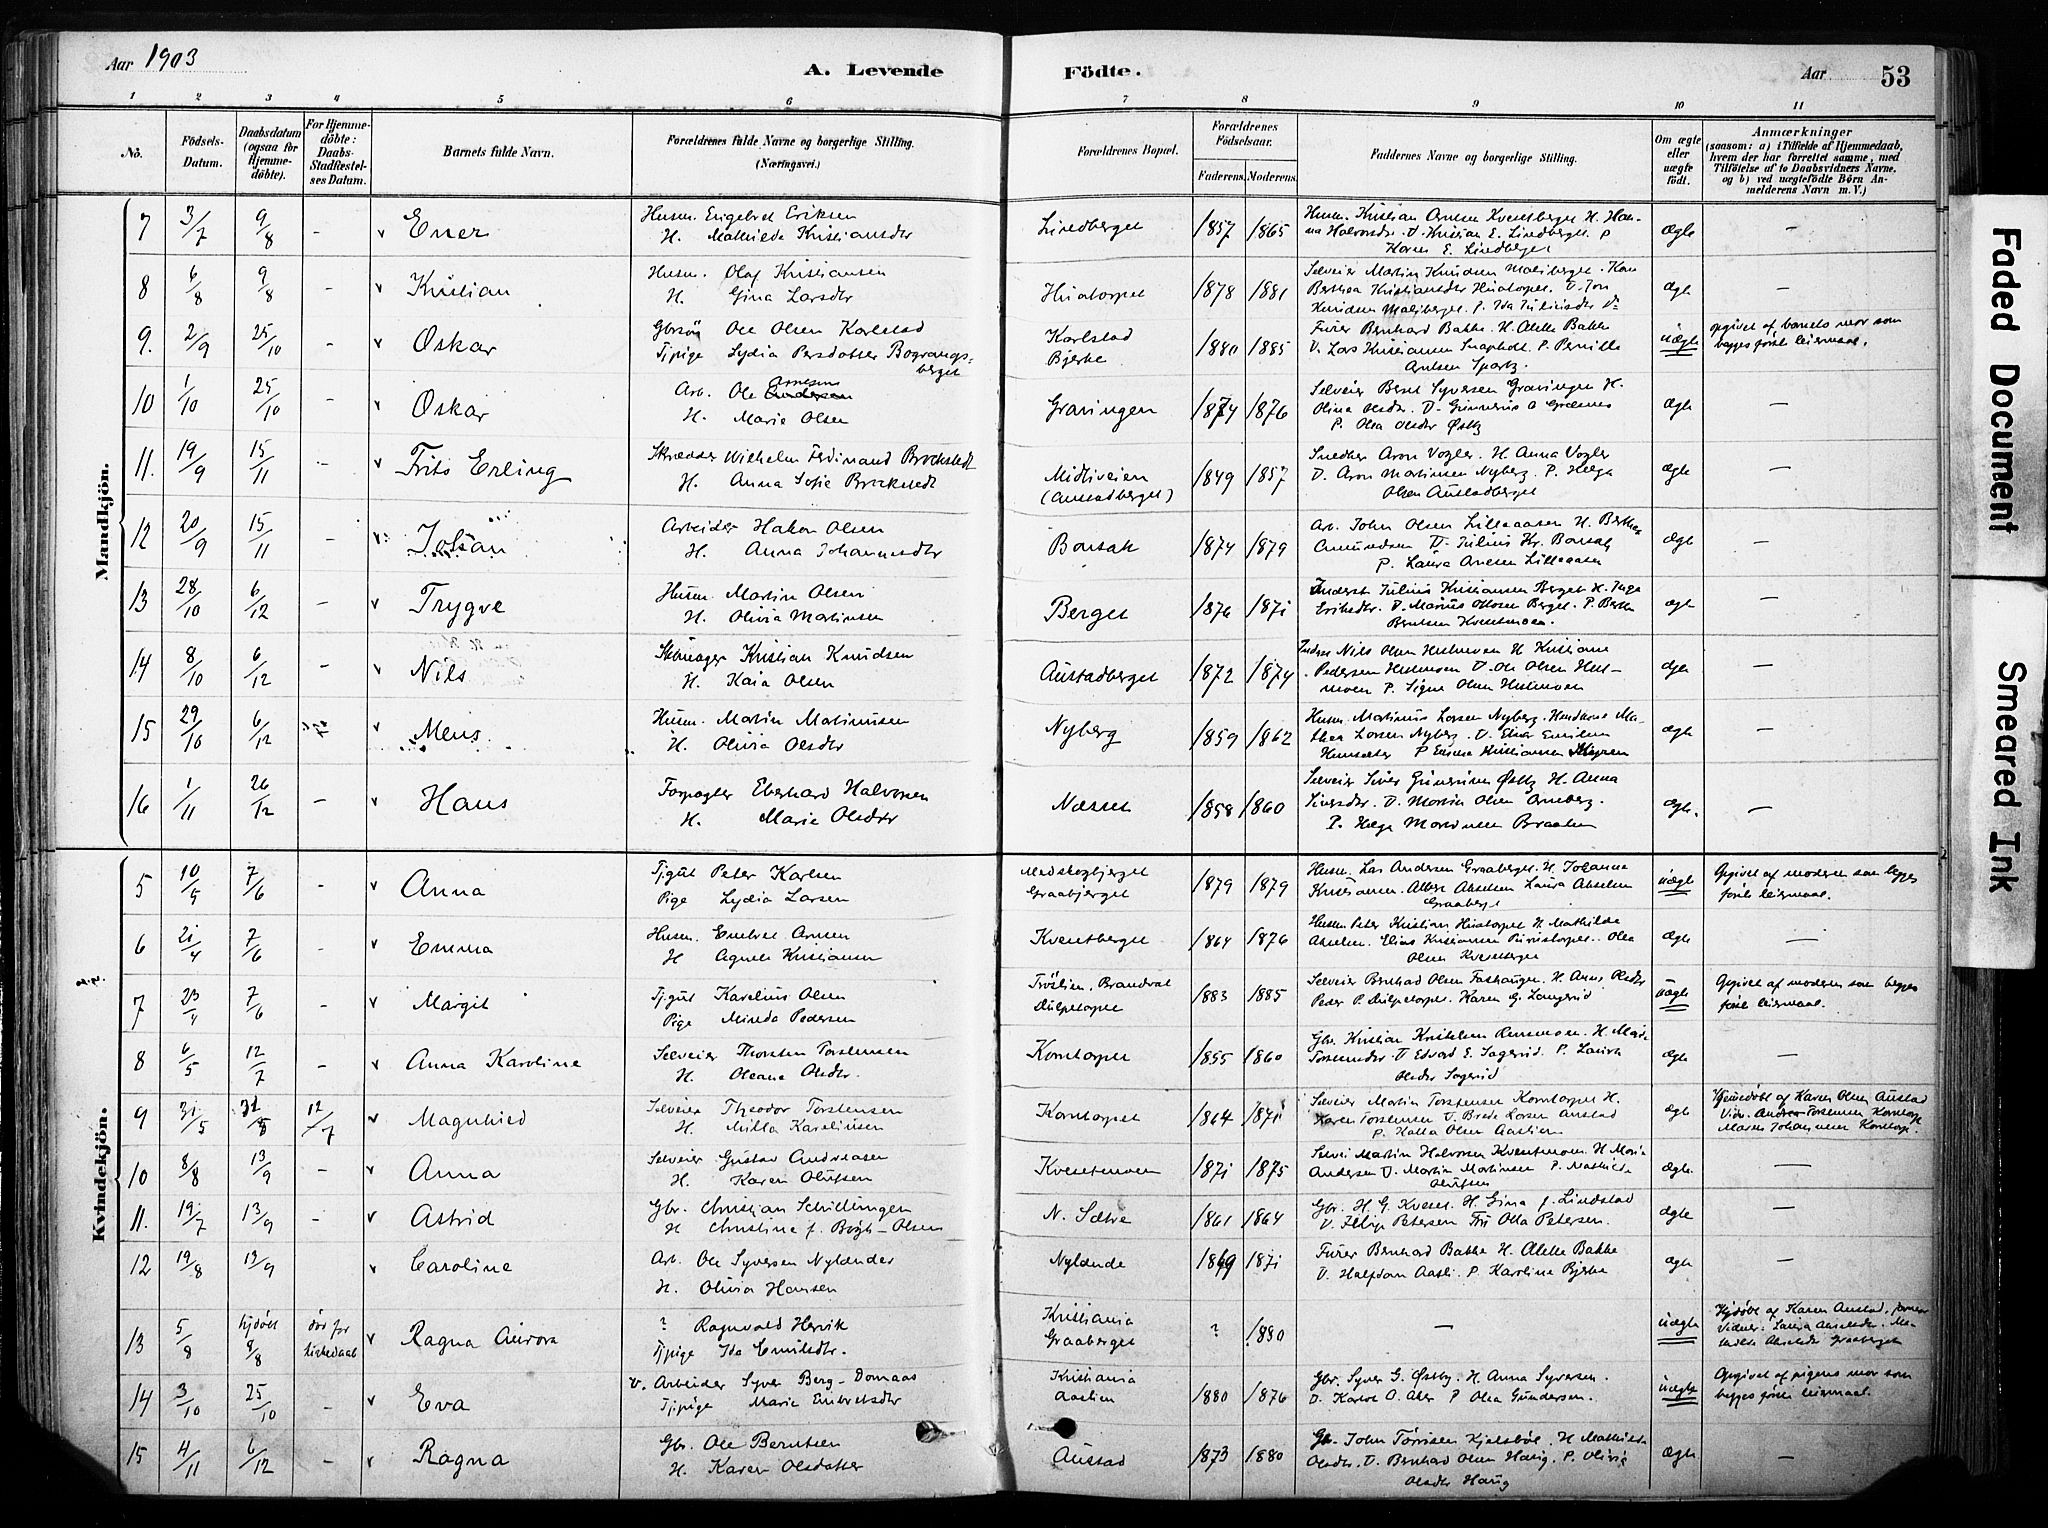 Aar 1903
A. Levende Födte.
Aar 53
1 2 3 4 5 6 7 8 9 10 11
No. Födsels-Datum. Daabsdatum (ogsaa for Hjemmedöbte). For Hjemmedöbte: Daabs-Stadfestelses Datum. Barnets fulde Navn. Forældrenes fulde Navne og borgerlige Stilling. (Næringsvei.) Forældrenes Bopæl. Forældrenes Födselsaar. Faderens. Moderens. Faddernes Navne og borgerlige Stilling. Om ægte eller uægte födt. Anmærkninger (saasom: a) i Tilfælde af Hjemmedaab, hvem der har forrettet samme, med Tilföielse af to Daabsvidners Navne, og b) ved uægtefödte Börn Anmelderens Navn m. V.)
Mandkjön.
7 3/7 9/8 - Ener Husm. Engebret Eriksen
H. Mathilde Kristiansdtr Lindberget 1857 1865 Husm. Kristian Arnesen Kventberget H. Hanna Halvorsdtr. U. Kristian E. Lindberget P. Hans E. Lindberget ægte -
8 6/8 9/8 - Kristian Husm. Olaf Kristiansen
H. Gina Larsdtr Hiatorpet 1878 1881 Selveier Martin Knudsen Maliberget. Kone Berthea Kristiansdtr Hiatorpet. U. Jon Knudsen Maliberget. P. Ida Juliusdtr Do ægte -
9. 2/9 25/10 - Oskar Gbrsøn Ole Olsen Karlstad
Tjpige Lydia Persdatter Bograngsberget Karlstad
Bjerke 1880 1885 Furer Bernhard Bakke. H. Alette Bakke U. Lars Kristiansen Snapholt. P. Pernille Arnesen uægte opgivet af barnets mor som begges første leiermaal.
10 1/10 25/10 - Oskar Arb. Ole Arnesen
H. Marie Olsen Graningen 1874 1876 Selveier Bernt Syversen Graningen H. Olina Olsdtr. U. Gunnerius P. Olea Olsdtr Østby ægte -
11. 19/9 15/11 - Frits Erling Skrædder Wilhelm Ferdinand Brockstedt
H. Anna Sofie Brockstedt Midtiveien (Austadberget) 1849 1857 Snedker Aron Vogler. H Anna Vogler U. Aron Martinsen Nyberg. P. Helga Olsen Austadberget ægte -
12 20/9 15/11 - Johan Arbeider Hakon Olsen
H. Anna Johannesdtr Bonsak 1874 1879 Arb. John Olsen Lilleaasen H. Berthea Amundsen U. Julius Kr. Bonsak P. Laura Arnesen Lilleaasen ægte -
13 28/10 6/12 - Trygve Husm. Martin Olsen
H. Olivia Martinsen Berget 1876 1871 Inderst Julius Kristiansen Berget H. Inga Eriksdtr. U. Marius Ottosen Berget. P. Berthe Berntsen Kventmoen. ægte -
14 8/10 6/12 - Nils Skomager Kristian Knudsen
H. Kaia Olsen Austadberget 1872 1874 Nils Olsen Husmoen H Kristiane Pedersen Husmoen U. Ole Olsen Husmoen P. Signe Olsen Husmoen ægte -
15 29/10 6/12 Mens. Husm. Martin Martinusen
H. Olivia Olsdtr Nyberg 1859 1862 Husm. Martinus Larsen Nyberg. Husm Mathea Larsen Nyberg. U. Einar Emilsen P Kristiansen ægte -
16 1/11 26/12 - Hans Forpagter Eberhard Halvorsen
H. Marie Olsdtr Næsset 1858 1860 Selveier Siver Gunnersen Østby H. Anna Siversdtr. U. Martin Olsen Arneberg. P. Helga Martinsen Braaten ægte. -
Kvindekjön.
5 10/5 7/6 - Anna Tjgut Peter Karlsen
Pige Lydia Larsen Medskogsberget
Graaberget 1879 1879 Husm. Lars Andersen Graaberget. H. Johanna Kristiansen. Albert Akselsen Laura Akselsen Graaberget uægte Opgivet af moderen som begges første leiermaal.
6 21/4 7/6 Emma Husm. Embret Arnesen
H Agnete Kristiansen Kventberget 1864 1876 Husm Peter Kristian Hiatorpet H Mathilde Akselsen. Elias Kristiansen. Olea Olsen Kventberget ægte -
7 23/4 7/6 Margit Tjgut Karelius Olsen
Pige Minda Pedersen Tröslien, Brandval
Dulpetorpet 1883 1885 Selveier Bernhard Olsen. H. Anne Olsdtr Peter P. Dulpetorpet. Karen G. Langerud uægte Opgivet af moderen som begges første leiermaal.
8 6/5 12/7 - Anna Karoline Selveier Thorsten Torstensen
H. Oleane Olsdtr. Korntorpet 1855 1860 Gbr. Kristian Kristiansen Rensmoen. H. Marte Torstensdtr. U Edvard E. Sagerud. P. Laura Olsdtr Sagerud ægte -
9 31/5 31/8 12/7 Magnhild Selveier Theodor Torstensen
H. Milla Karelinsen Korntorpet 1864 1871 Selveier Martin Torstensen Korntorpet H. Karen Torstensen U. Brede Larsen Austad P. Kalla Olsen Aaslien ægte Hjemedøbt af Karen Olsen Austad Vidn. Andrea Torstensen Korntorp. Maren Johannesen Korntorp.
10 8/8 13/9 - Anna Selveier Gustav Andreasen
H. Karen Olufsen Kventmoen 1871 1875 Selvei Martin Halvorsen Kventmoen. H Maria Andersen U. Martin Martinsen P. Mathilda Olufsen ægte -
11. 19/7 13/9 - Astrid Gbr. Christian Schillingen
H Christine f. Bogh-Olsen N. Sætre 1861 1864 Gbr. H. G. Kvesæt. H. Gina f. Lindstad U. Filip Petersen Frk Olla Petersen. ægte -
12 19/8 13/9 Caroline Arb. Ole Syversen Nylænder
H. Olivia Hansen Nylænde 1869 1871 Furer Bernhard Bakke H. Alette Bakke U. Halfdan Aasli. P. Karoline Bjerke ægte -
13 5/8 hjdöbt 8/8 död før kirkedaab Ragna Aurora ? Ragnvald Hervik
Tjpige Ida Emilsdtr. Kristiania
Graaberget ? 1880 - uægte Hjdøbt af Karen Austad. Vidner: Laura Akselsdtr. Mathilde Akselsdtr Graaberget
14 3/10 25/10 - Eva U. Arbeider Syver Berg-Domaas
Tjpige Marie Embretsdtr Kristiania
Aaslien 1880 1876 Gbr. Syver G. Østby. H. Anna Syversen. U. Karl O. Aker P Olea Gundersen. uægte Opgivet af pigens mor som begges første leiermaal.
15 4/11 6/12 - Ragna Gbr. Ole Berntsen
H. Karen Olsdatter Austad 1873 1880 Gbr. John Törrisen Kjelsbøl. H Mathilde Olsdtr. U. Bernhard Olsen Haug. P. Olivia Olsdtr Haug ægte -
Faded Document
Smeared Ink